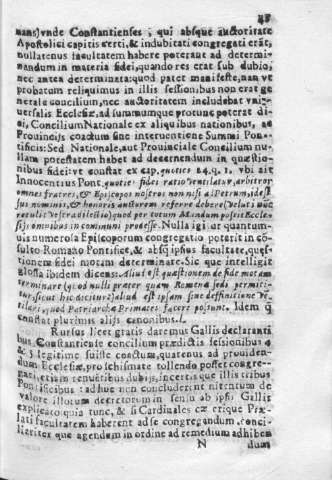 nans) vnde Constantienses, qui absque auctoritate
Apostolici capitis certi, & indubitati congregati erāt,
nullatenus facultatem habere poterant ad determi-
nandum in materia fidei, quando res erat sub dubio,
nec antea determinata: quod patet manifeste, nan ve
probatum reliquimus in illis sessionibus non erat ge
nerale concilium, nec auctoritatem includebat vni-
uersalis Ecclesiæ, ad summumque pro tunc poterat
ci, Concilium Nationale ex aliquibus nationibus, ac
Prouincijs coactum sine interuentione Summi Pon-
tificis: Sed Nationale, aut Prouinciale Concilium nu-
llam potestatem habet ad decernendum in quæstio-
nibus fidei: vt constat ex cap. quoties 24. q. 1. vbi ait
Innocentius Pont. quoties fidei ratio ventilatur, arbitror
omnes fratres, & Episcopos nostros non nisi ad Petrum, id est
sus nominis, & honoris auctorem referre debere (velut nūc
retulit vestra dilectio) quod per totum Mundum possit Eccle-
sijs omnibus in commune prodesse. Nulla igitur quantum-
uis numerosa Episcoporum congregatio poterit in cō-
sulto Romano Pontifice, & absque ipsius facultate, quæs-
tionem fidei motam determinare. Sic que intelligit
glossa ibidem dicens: Aliud est quæstionem de fide motam
terminare (quod nulli præter quam Romanæ sedi permitti-
tur, sicut hic dicitur) aliud est ipsam sine deffinitione ve-
tilare, quod Patriarchæ Primates facere possunt. Idem q̄
constat plurimis alijs canonibus.
Rursus licet gratis daremus Gallis declaranti
bus Constantiense concilium prædictis sessionibus 4
& 5 legitime fuisse coactum, quatenus ad prouiden-
dum Ecclesiæ, pro schismate tollendo posset congre-
gari, etiam renuentibus dubijs, incertisque illis tribus
Pontificibus: adhuc non concluderent intentum de
valore illorum decretorum in sensu ab ipsis Gallis
explicato, quia tunc, & si Cardinales cæterique Præ-
lati facultatem haberent ad se congregandum, conci-
liariter que agendum in ordine ad remedium adhiben
N dum